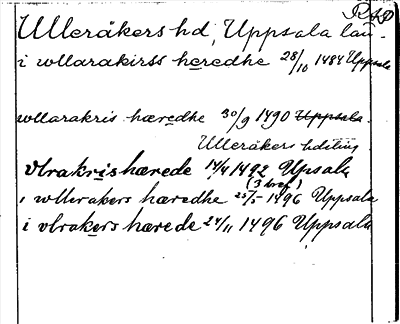 RAP
Ulleråkers hd, Uppsala län.
i wllarakirss heredhe 28/10 1484 Uppsala
wllarakris hæredhe 30/9 1490 Uppsala.
Ulleråkers hdsting
vlrakris hærede 14/4 1492 Upsala
(3 bref)
i wllerakers hæredhe 25/5 1496 Uppsala
i vlrakers hærede 24/11 1496 Uppsala